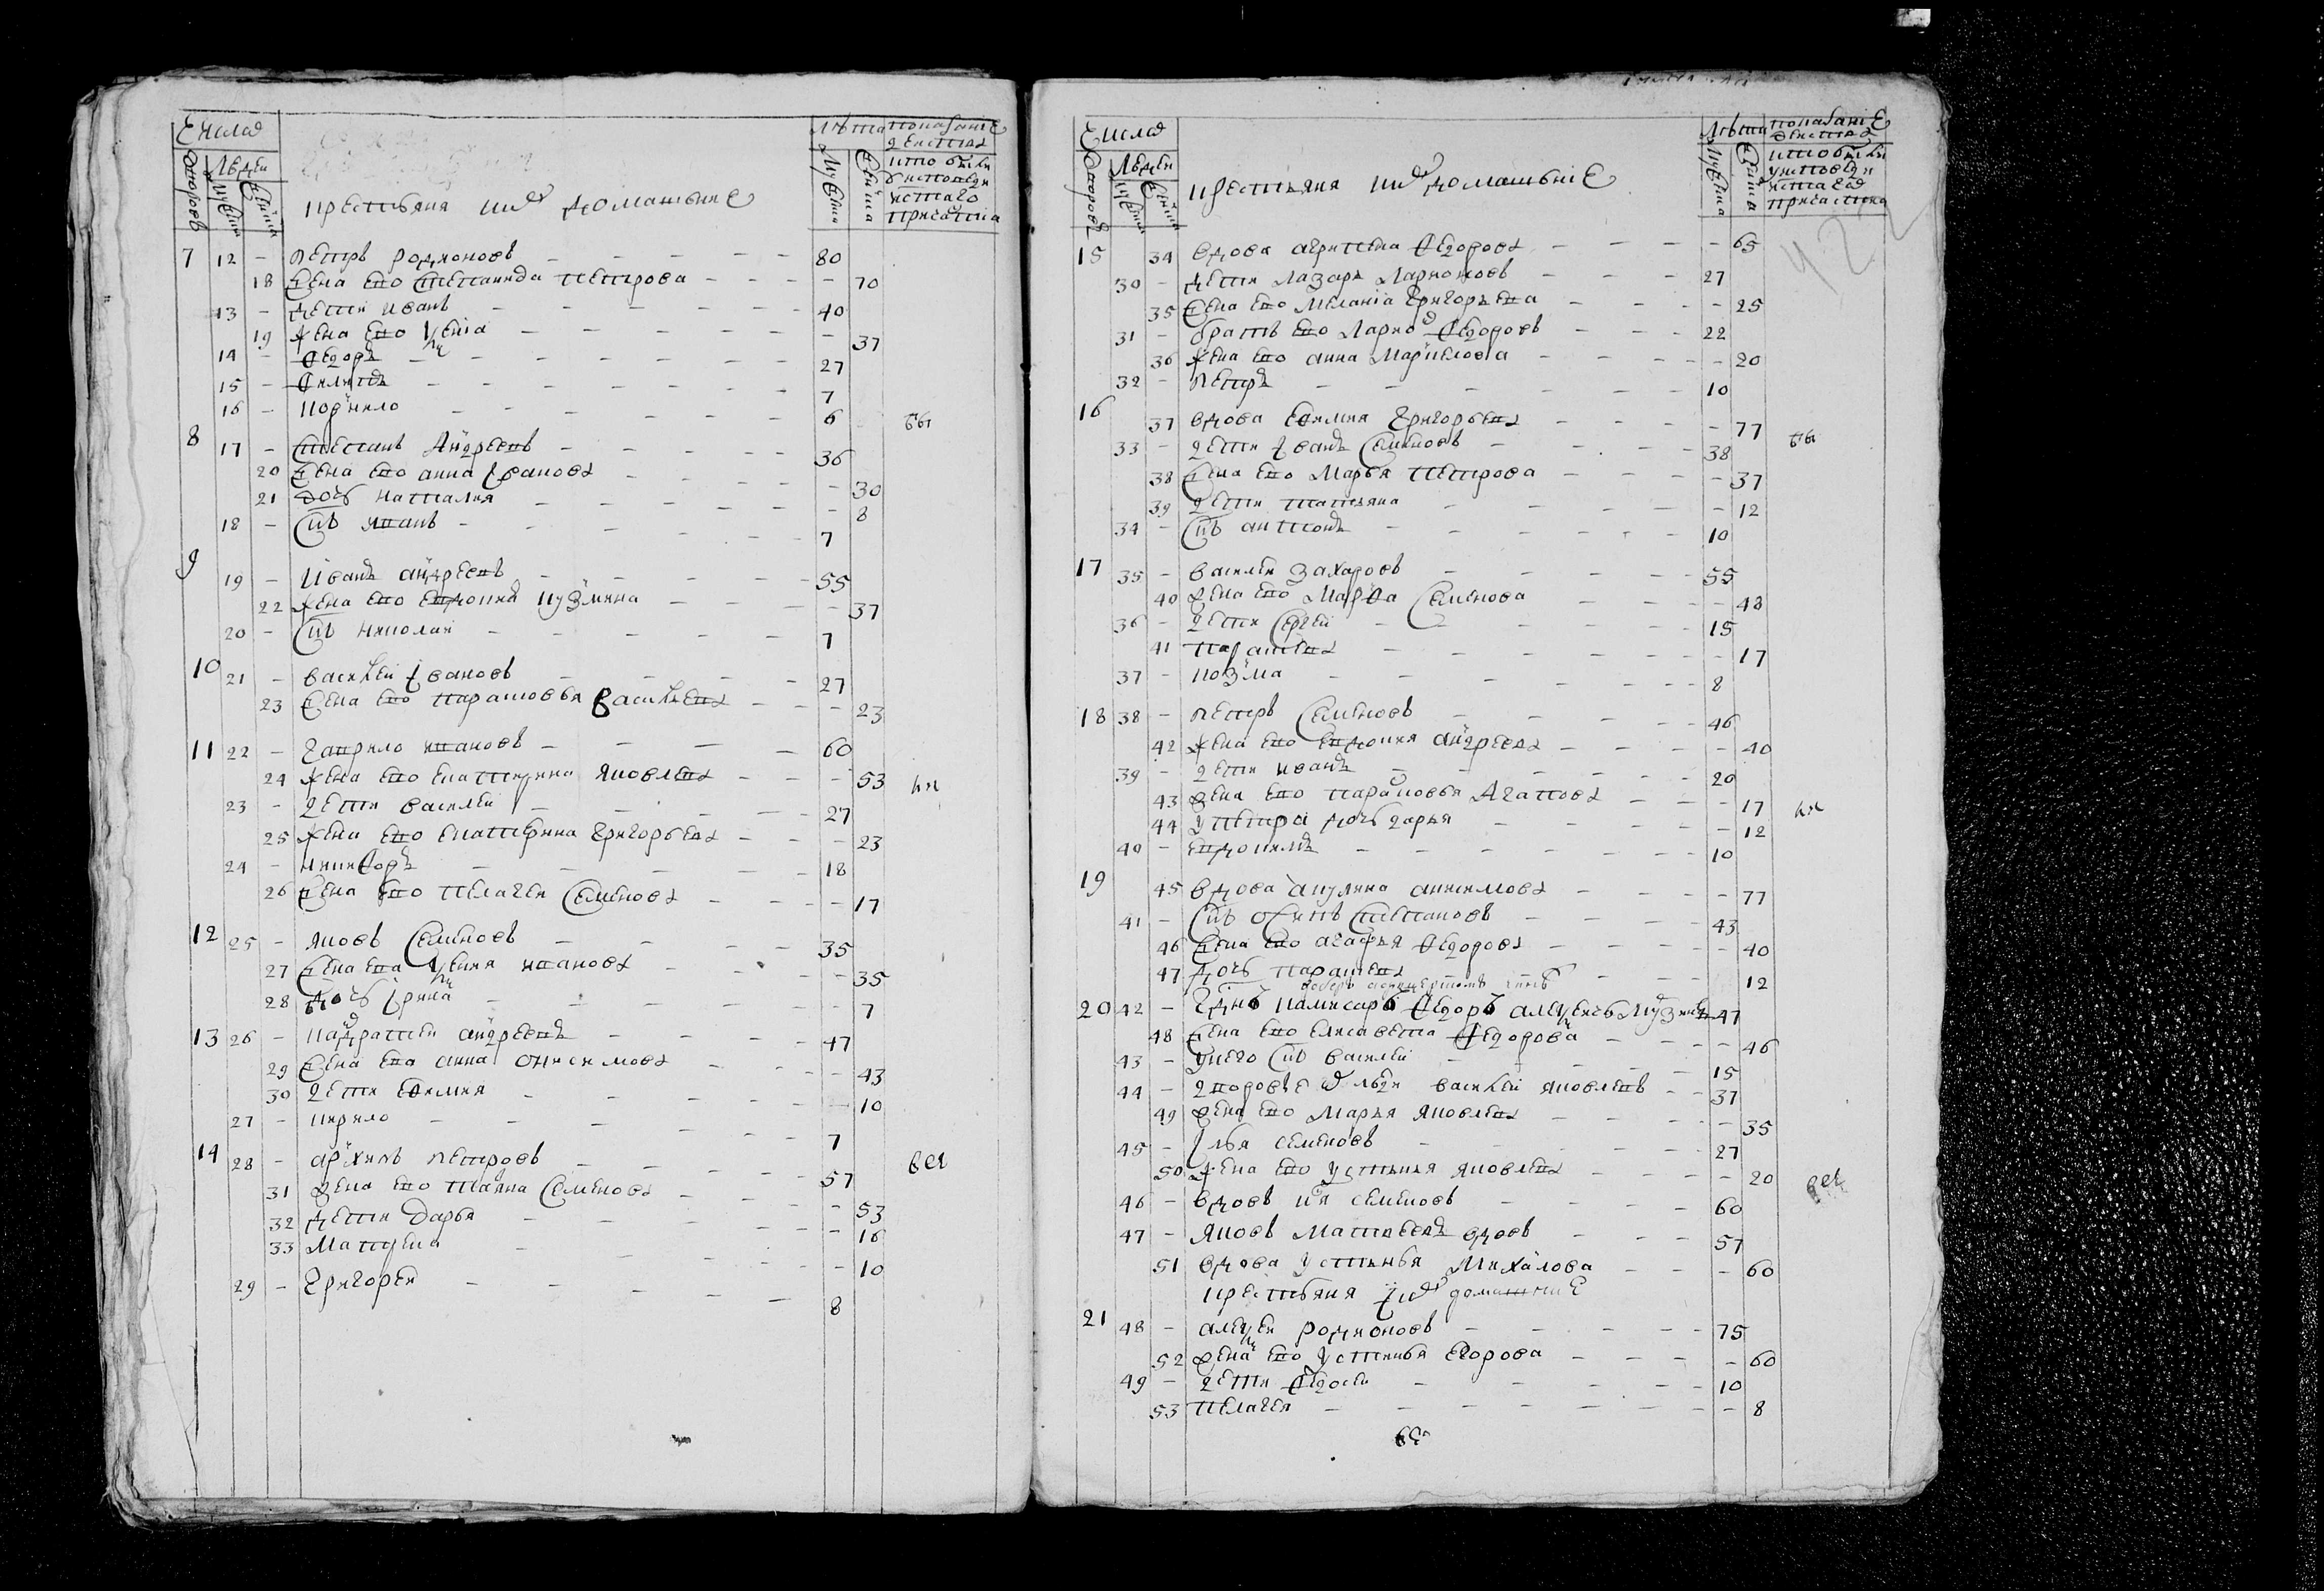 Числа
Людей
Дворовъ
Мужеска
Женска
крестьяня ихъ домашьние
Лѣта
Мужеска
Женска
показание
действа
кто были
у исповеди
и святаго
причастиа
7 12 – Петръ Родионовъ – 80
18 Жена ево Степанида Петрова – 70
13 – дети Иванъ – 40
19 Жена ево Ксения – 37
14 – Федоръ – 27
15 – Филипъ – 7
16 – Корнило – 6
бы
8 17 – Степанъ Андреевъ – 36
20 Жена ево Анна Иванова – 30
21 дочь Наталия – 8
18 – Сынъ Иванъ – 7
9 19 – Иванъ Андреевъ – 55
22 Жена ево Евдокия Кузмина – 37
20 – Сынъ Николаи – 7
10 21 – Василеи Ивановъ – 27
23 Жена ево Парасковья Васильева – 23
11 22 – Гаврило Ивановъ – 60
24 Жена ево Екатерина Яковлева – 53
ли
23 – Дети Василеи – 27
25 Жена ево Екатерина Григорьева – 23
24 – Никифоръ – 18
26 Жена ево Пелагея Семенова – 17
12 25 – Яковъ Семеновъ – 35
27 Жена ева Ксения Иванова – 35
28 дочь Ирина – 7
13 26 – Кандратеи Андреевъ – 47
29 Жена ева Анна Онисимова – 43
30 Дети Ефимия – 10
27 – Кирило – 7
14 28 – Архипъ Петровъ – 57
все
31 Жена ево Таяна Семенова – 53
32 дети Дарья – 16
33 Матрена – 10
29 – Григореи – 8
Числа
Людей
Дворовъ
Мужеска
Женска
крестьяня ихъ домашьние
Лѣта
Мужеска
Женска
показание
действа
кто были
у исповеди
и святаго
причастия
422
15 34 вдова Агрипена Федорова – 65
30 – дети Лазарь Ларионовъ – 27
35 Жена ево Мелания Григорьева – 25
31 – братъ ево Ларион Федоровъ – 22
36 Жена ево Анна Маркелова – 20
32 – Петръ – 10
16 37 вдова Ефимия Григорьева – 77
бы
33 – Дети Иванъ Семеновъ – 38
38 Жена ево Марья Петрова – 37
39 Дети Татьяна – 12
34 – Сынъ Антонъ – 10
17 35 – Василеи Захаровъ – 55
40 Жена ево Марфа Семенова – 48
36 – Дети Сергеи – 15
41 Парасковья – 17
37 – Козма – 8
18 38 – Петръ Семеновъ – 46
42 Жена ево Евдокия Андреева – 40
39 – Дети Иванъ – 20
43 Жена ево Парасковья Агапова – 17
ли
44 У Петра дочь Дарья – 12
40 – Евдокимъ – 10
19 45 вдова Акулина Анисимова – 77
41 – Сынъ Осипъ Степановъ – 43
46 Жена ево Агафья Федорова – 40
47 дочь Парасковья – 12
20 42 – Гднъ камисаръ Федоръ Алексеевъ – 47
48 Жена ево Елисавета Федорова – 46
43 – У него Сынъ Василеи – 15
44 – Дворовые люди Василеи Яковлевъ – 37
49 Жена ево Марья Яковлева – 35
45 – Илья Семеновъ – 27
50 Жена ево Устинья Яковлева – 20
все
46 – вдовъ Семеновъ – 60
47 – Яковъ Матвеевъ вдовъ – 57
51 вдова Устинья Михайлова – 60
крестьяня ихъ домашние
21 48 – Алексеи Родионовъ – 75
52 Жена ево Устинья Егорова – 60
49 – Дети Федосеи – 10
53 Пелагея – 8